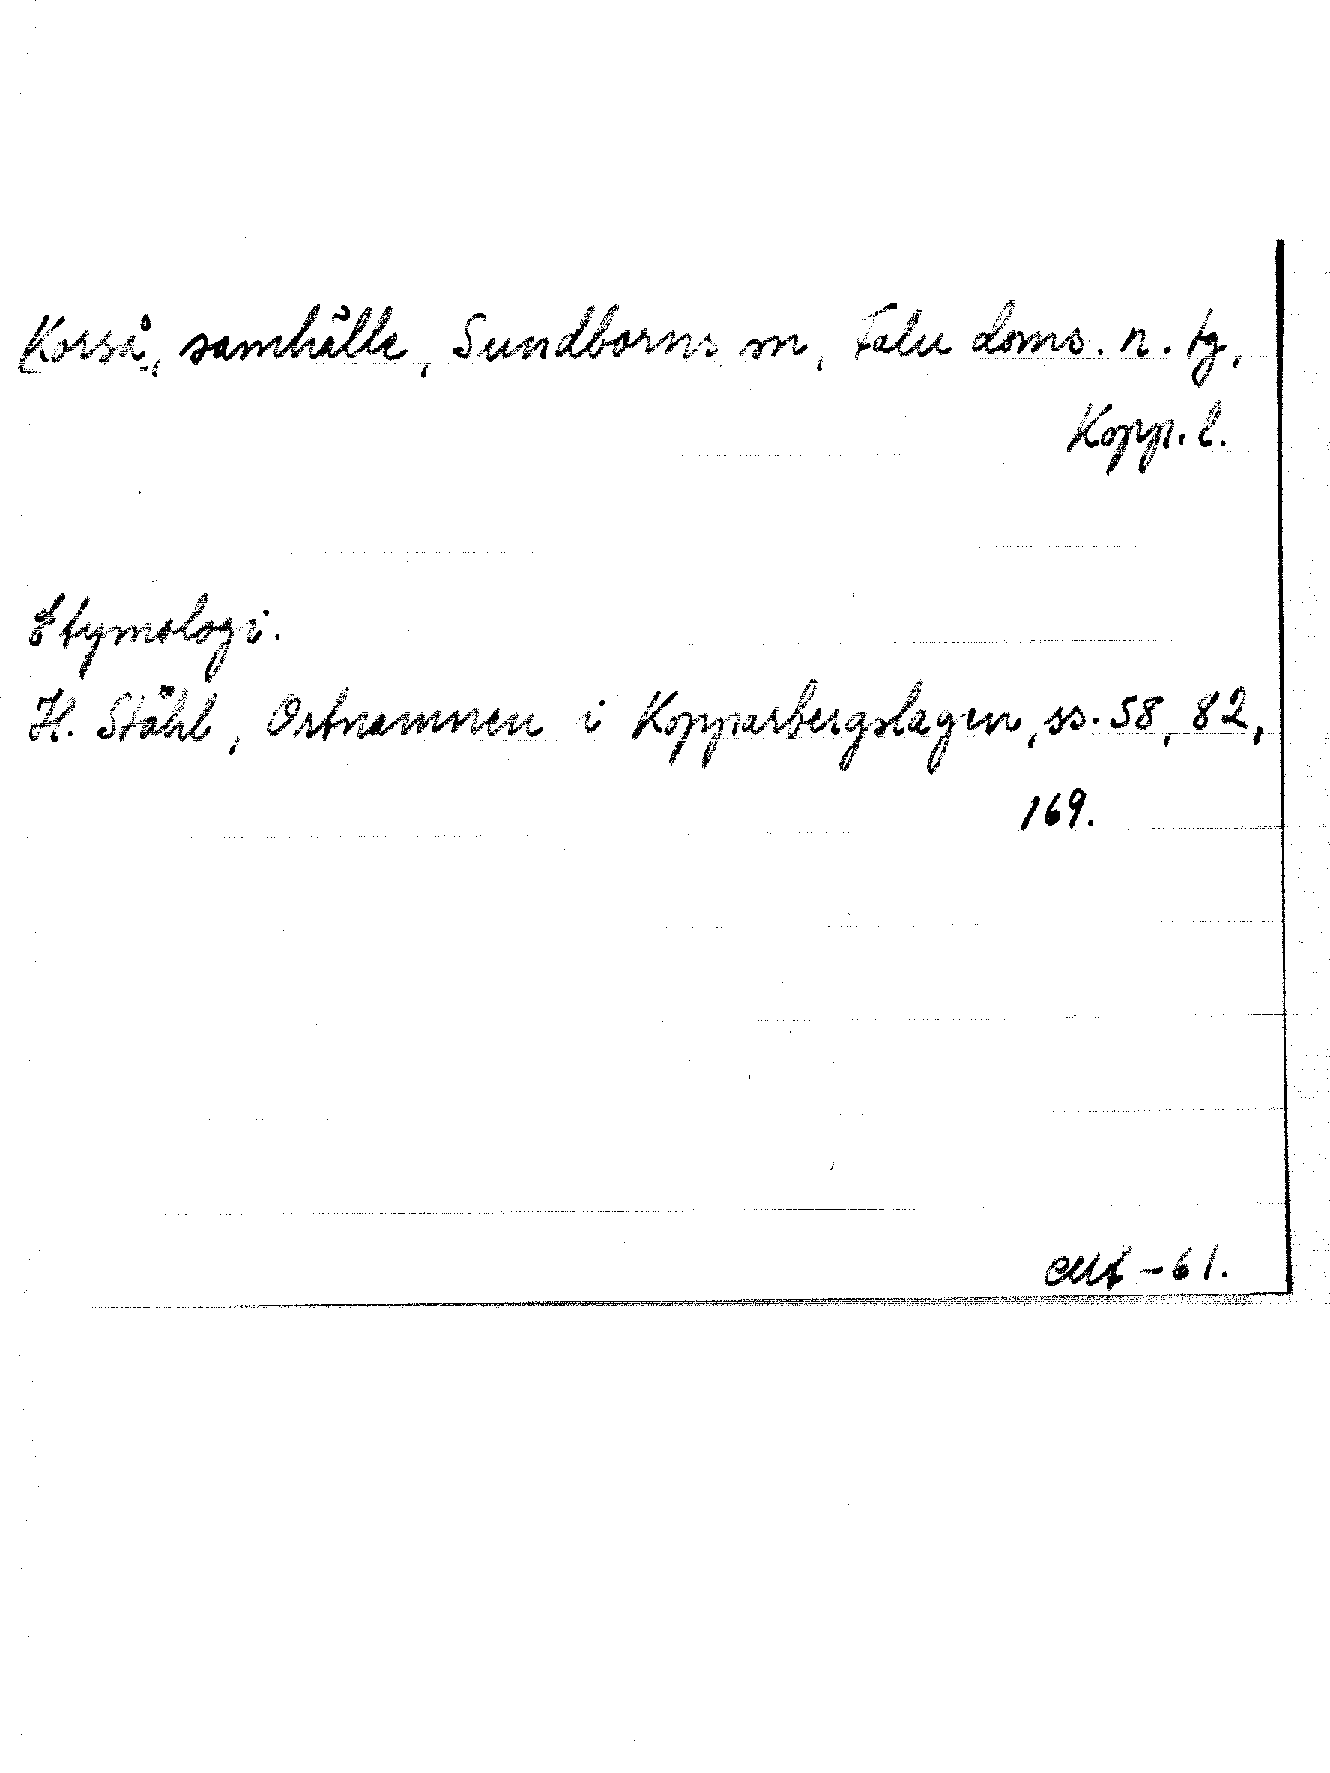 Korså, samhälle, Sundborns sn, Falu doms. n. tg,
Kopp. l.
Etymologi.
H. Ståhl, Ortnamnen i Kopparbergslagen, ss. 58, 82,
169.
-61.